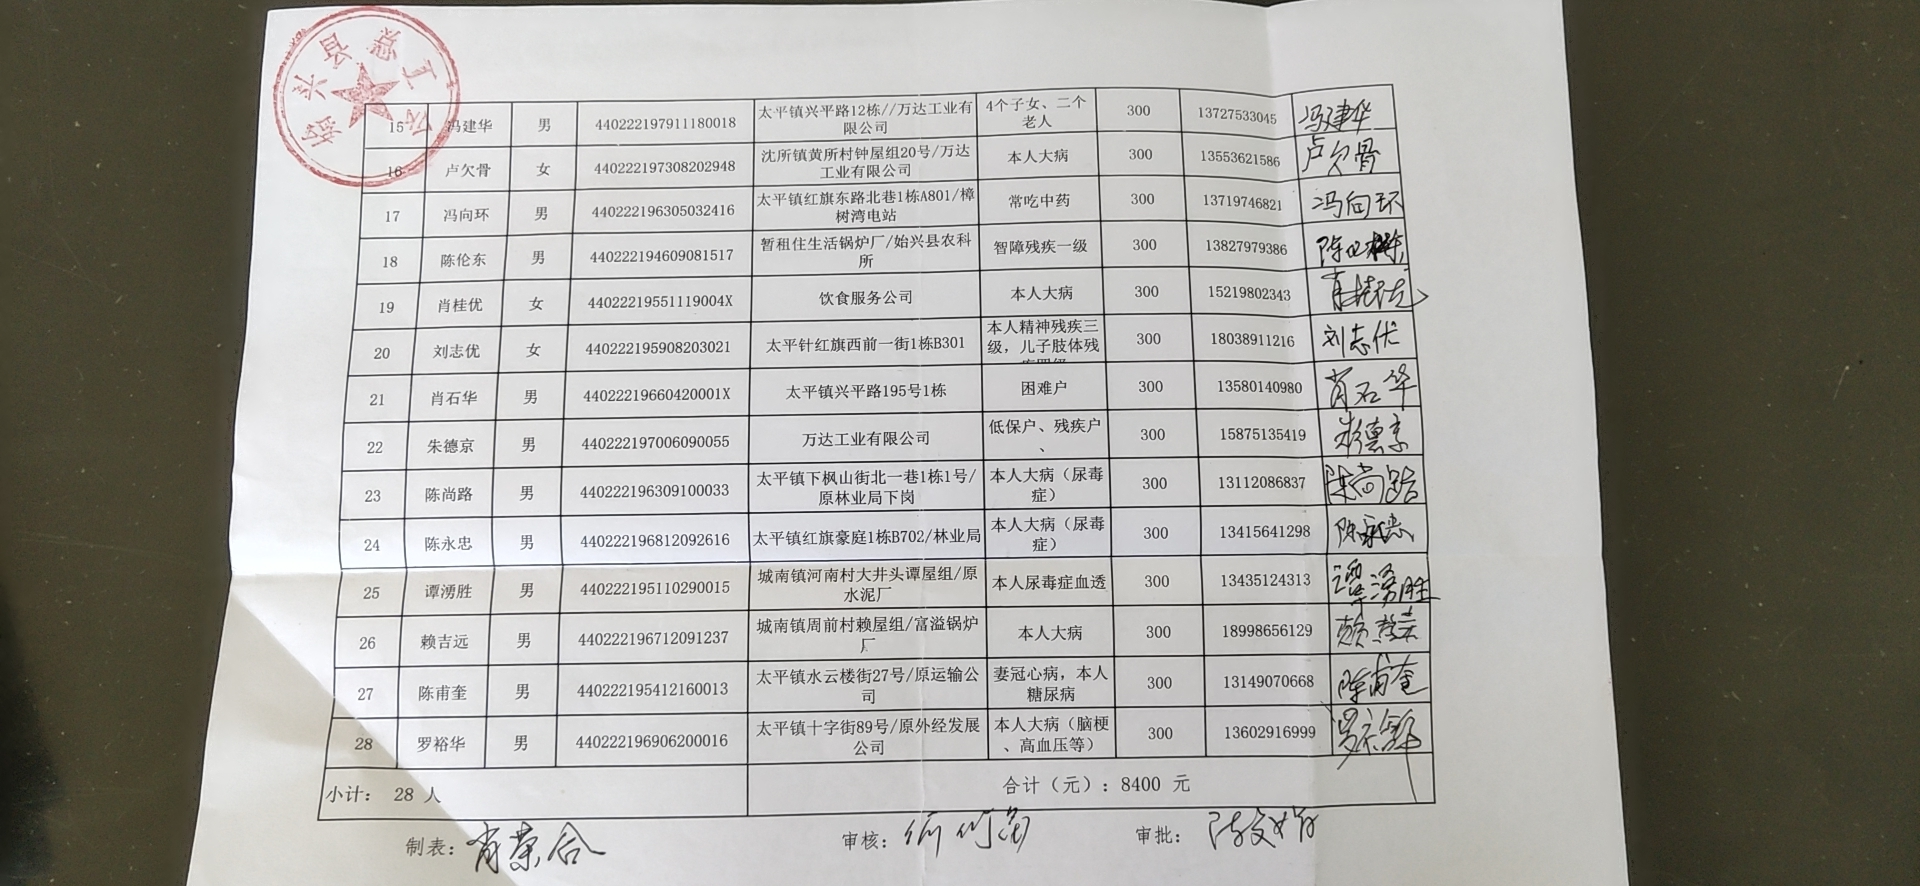 始兴县总工会
15 冯建华 男 440222197911180018 太平镇兴平路12栋//万达工业有 4个子女、二个 300 13727533045 冯建华
限公司 老人
16 卢欠骨 女 440222197308202948 沈所镇黄所村钟屋组20号/万达 本人大病 300 13553621586 卢欠骨
工业有限公司
17 冯向环 男 440222196305032416 太平镇红旗东路北巷1栋A801/樟 常吃中药 300 13719746821 冯向环
树湾电站
18 陈伦东 男 440222194609081517 暂租住生活锅炉厂/始兴县农科 智障残疾一级 300 13827979386
所
19 肖桂优 女 44022219551119004X 饮食服务公司 本人大病 300 15219802343 肖桂优
20 刘志优 女 440222195908203021 太平针红旗西前一街1栋B301 本人精神残疾三 300 18038911216 刘志优
级，儿子肢体残
21 肖石华 男 44022219660420001X 太平镇兴平路195号1栋 困难户 300 13580140980 肖石华
22 朱德京 男 440222197006090055 万达工业有限公司 低保户、残疾户 300 15875135419 朱德京
、
23 陈尚路 男 440222196309100033 太平镇下枫山街北一巷1栋1号/ 本人大病（尿毒 300 13112086837 陈尚路
原林业局下岗 症）
24 陈永忠 男 440222196812092616 太平镇红旗豪庭1栋B702/林业局 本人大病（尿毒 300 13415641298 陈永忠
症）
25 谭湧胜 男 440222195110290015 城南镇河南村大井头谭屋组/原 本人尿毒症血透 300 13435124313 谭湧胜
水泥厂
26 赖吉远 男 440222196712091237 城南镇周前村赖屋组/富溢锅炉 本人大病 300 18998656129
厂
27 陈甫奎 男 440222195412160013 太平镇水云楼街27号/原运输公 妻冠心病，本人 300 13149070668 陈甫奎
司 糖尿病
28 罗裕华 男 440222196906200016 太平镇十字街89号/原外经发展 本人大病（脑梗 300 13602916999
公司 、高血压等）
小计： 28 人 合计（元）：8400 元
制表：肖荣合 审核： 审批：